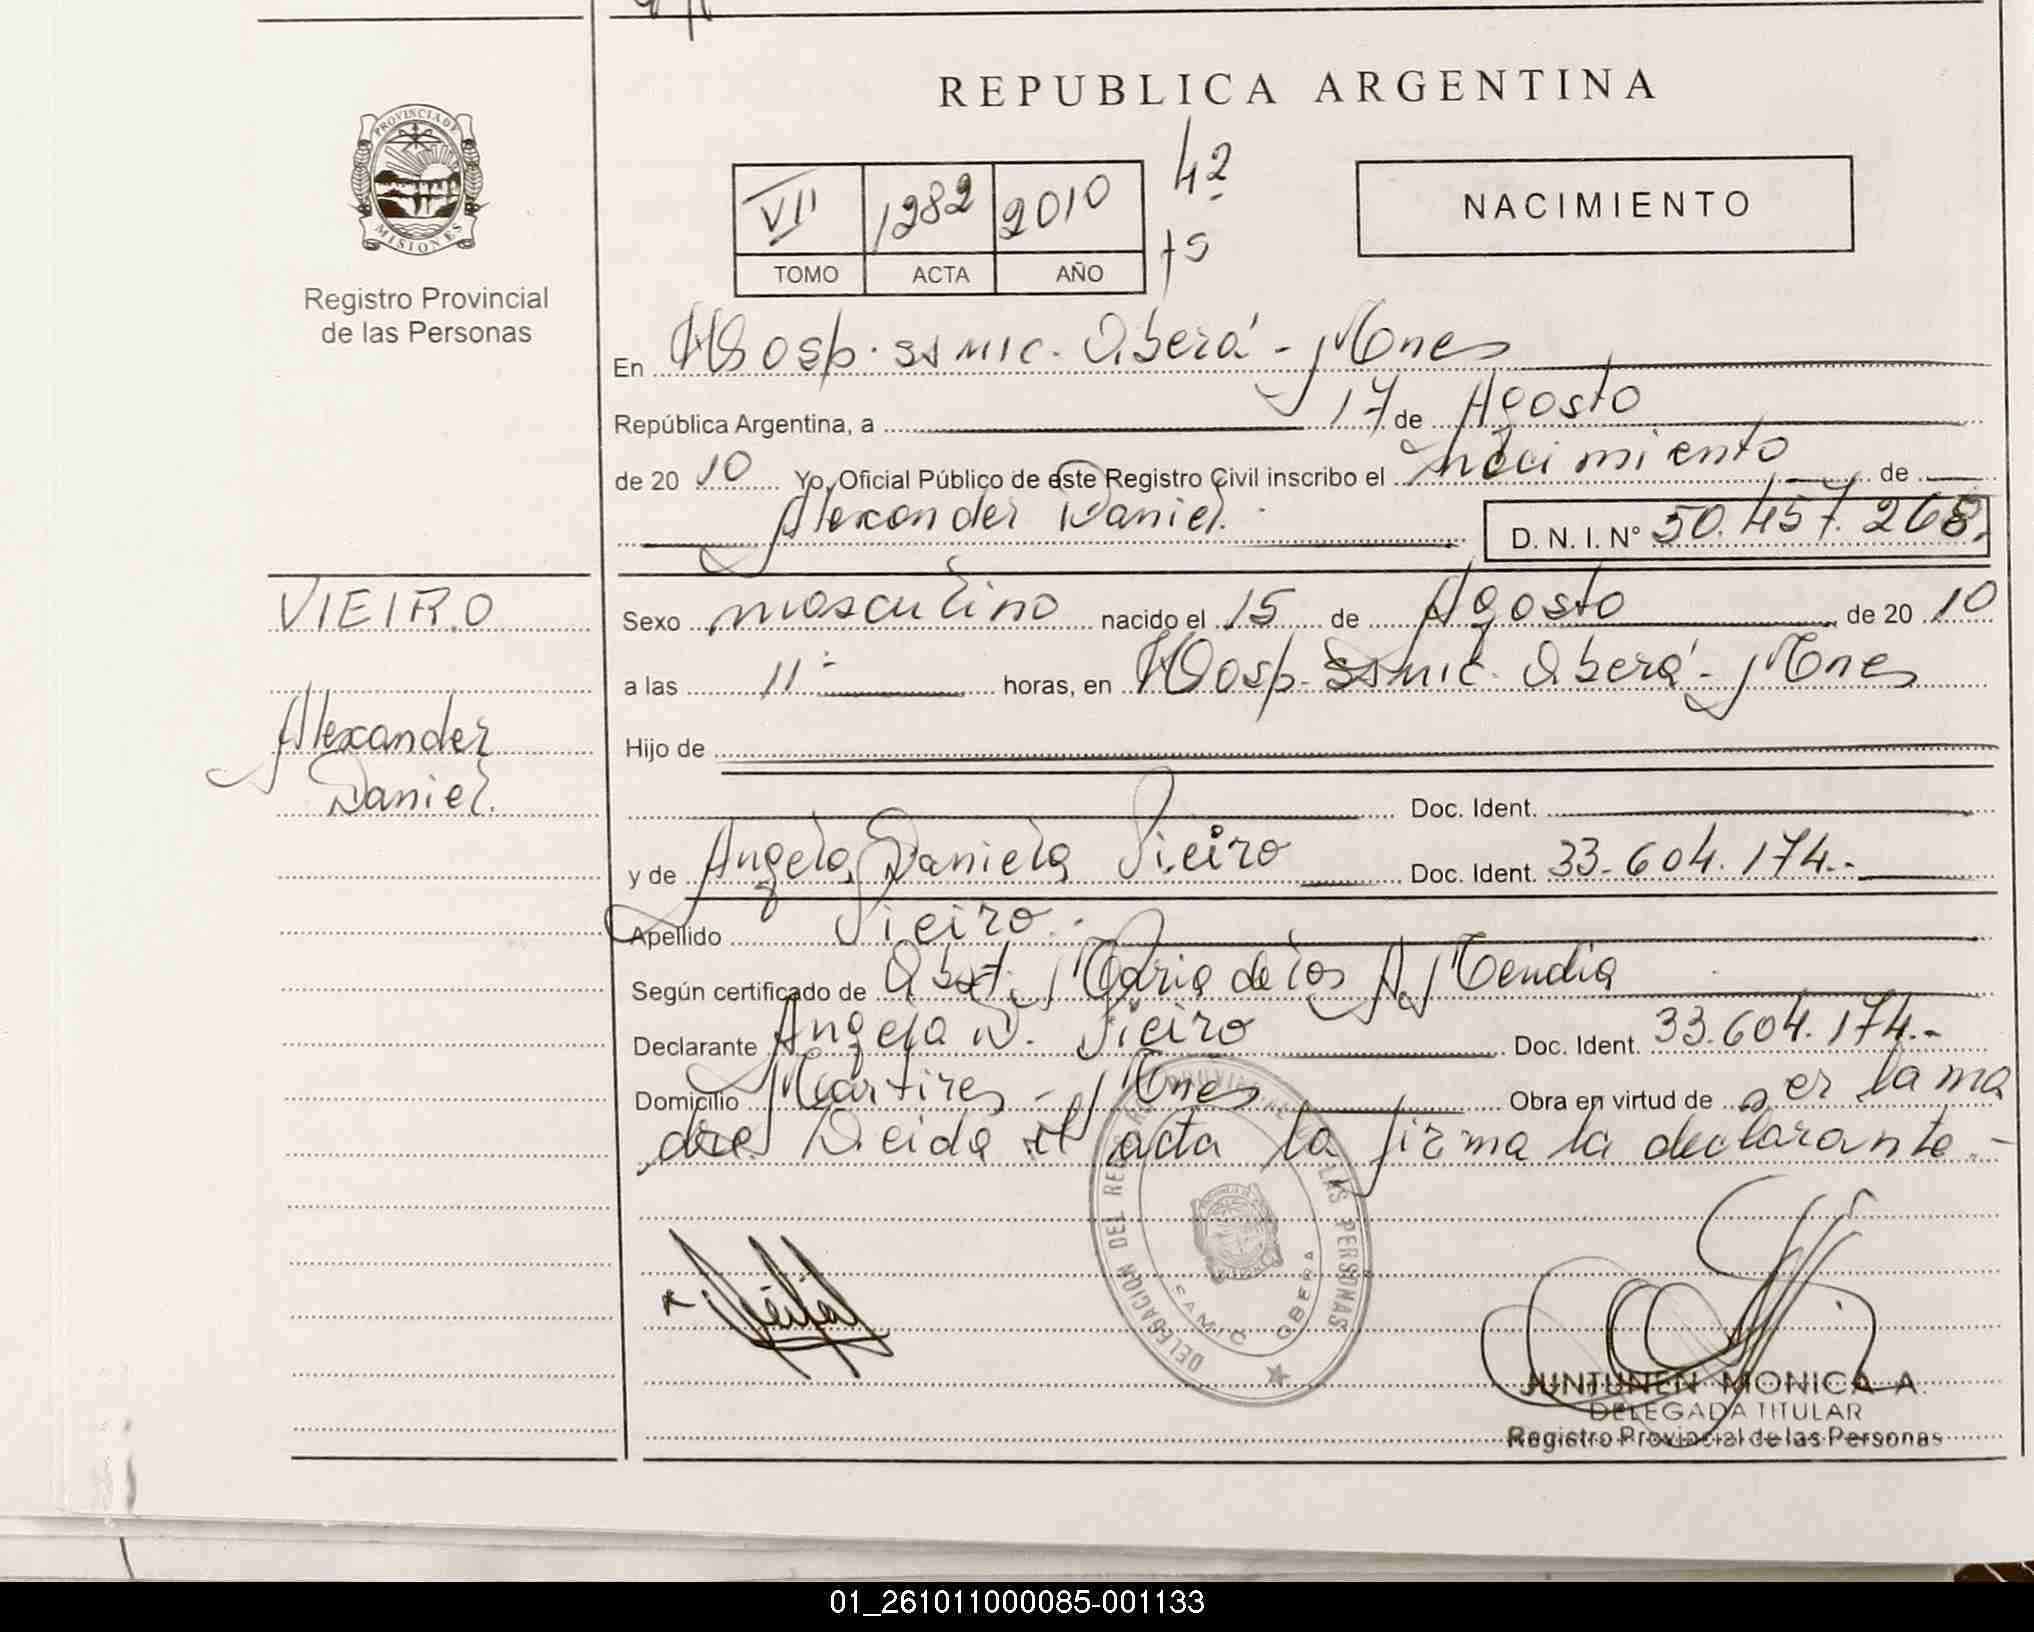 REPUBLICA ARGENTINA
PROVINCIA DE
MISIONES
Registro Provincial
de las Personas
VII 1282 2010
TOMO ACTA AÑO
42
75
NACIMIENTO
En Hosp. SAMIC. Oberá - Mnes
República Argentina, a 17 de Agosto
de 20 10 Yo, Oficial Público de este Registro Civil inscribo el nacimiento de
Alexander Daniel.
D. N. I. N° 50.457.268.
VIEIRO
Alexander
Daniel.
Sexo masculino nacido el 15 de Agosto de 20 10
a las 11 horas, en Hosp. SAMIC. Oberá - Mnes
Hijo de
Doc. Ident.
y de Angela Daniela Vieiro Doc. Ident. 33.604.174.-
Apellido Vieiro.-
Según certificado de Obst. Maria de los A. Mendia
Declarante Angela D. Vieiro Doc. Ident. 33.604.174.-
Domicilio Martires - Mnes Obra en virtud de ser la ma
dre Leida el acta la firma la declarante.-
DELEGACION DEL REGISTRO PROVINCIAL DE LAS PERSONAS
SAMIC OBERA
JUNTUNEN MONICA A.
DELEGADA TITULAR
Registro Provincial de las Personas
01_261011000085-001133